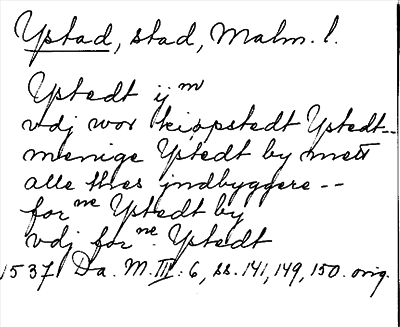 Ystad, stad, Malm. l.
Ystedt ij m
vdj wor kiøpstedt Ystedt--
menige Ystedt by mett
alle thes jndbyggere--
for ne Ystedt by
vdj for ne. Ystedt
1537 Da. M. III: 6, ss. 141, 149, 150. orig.